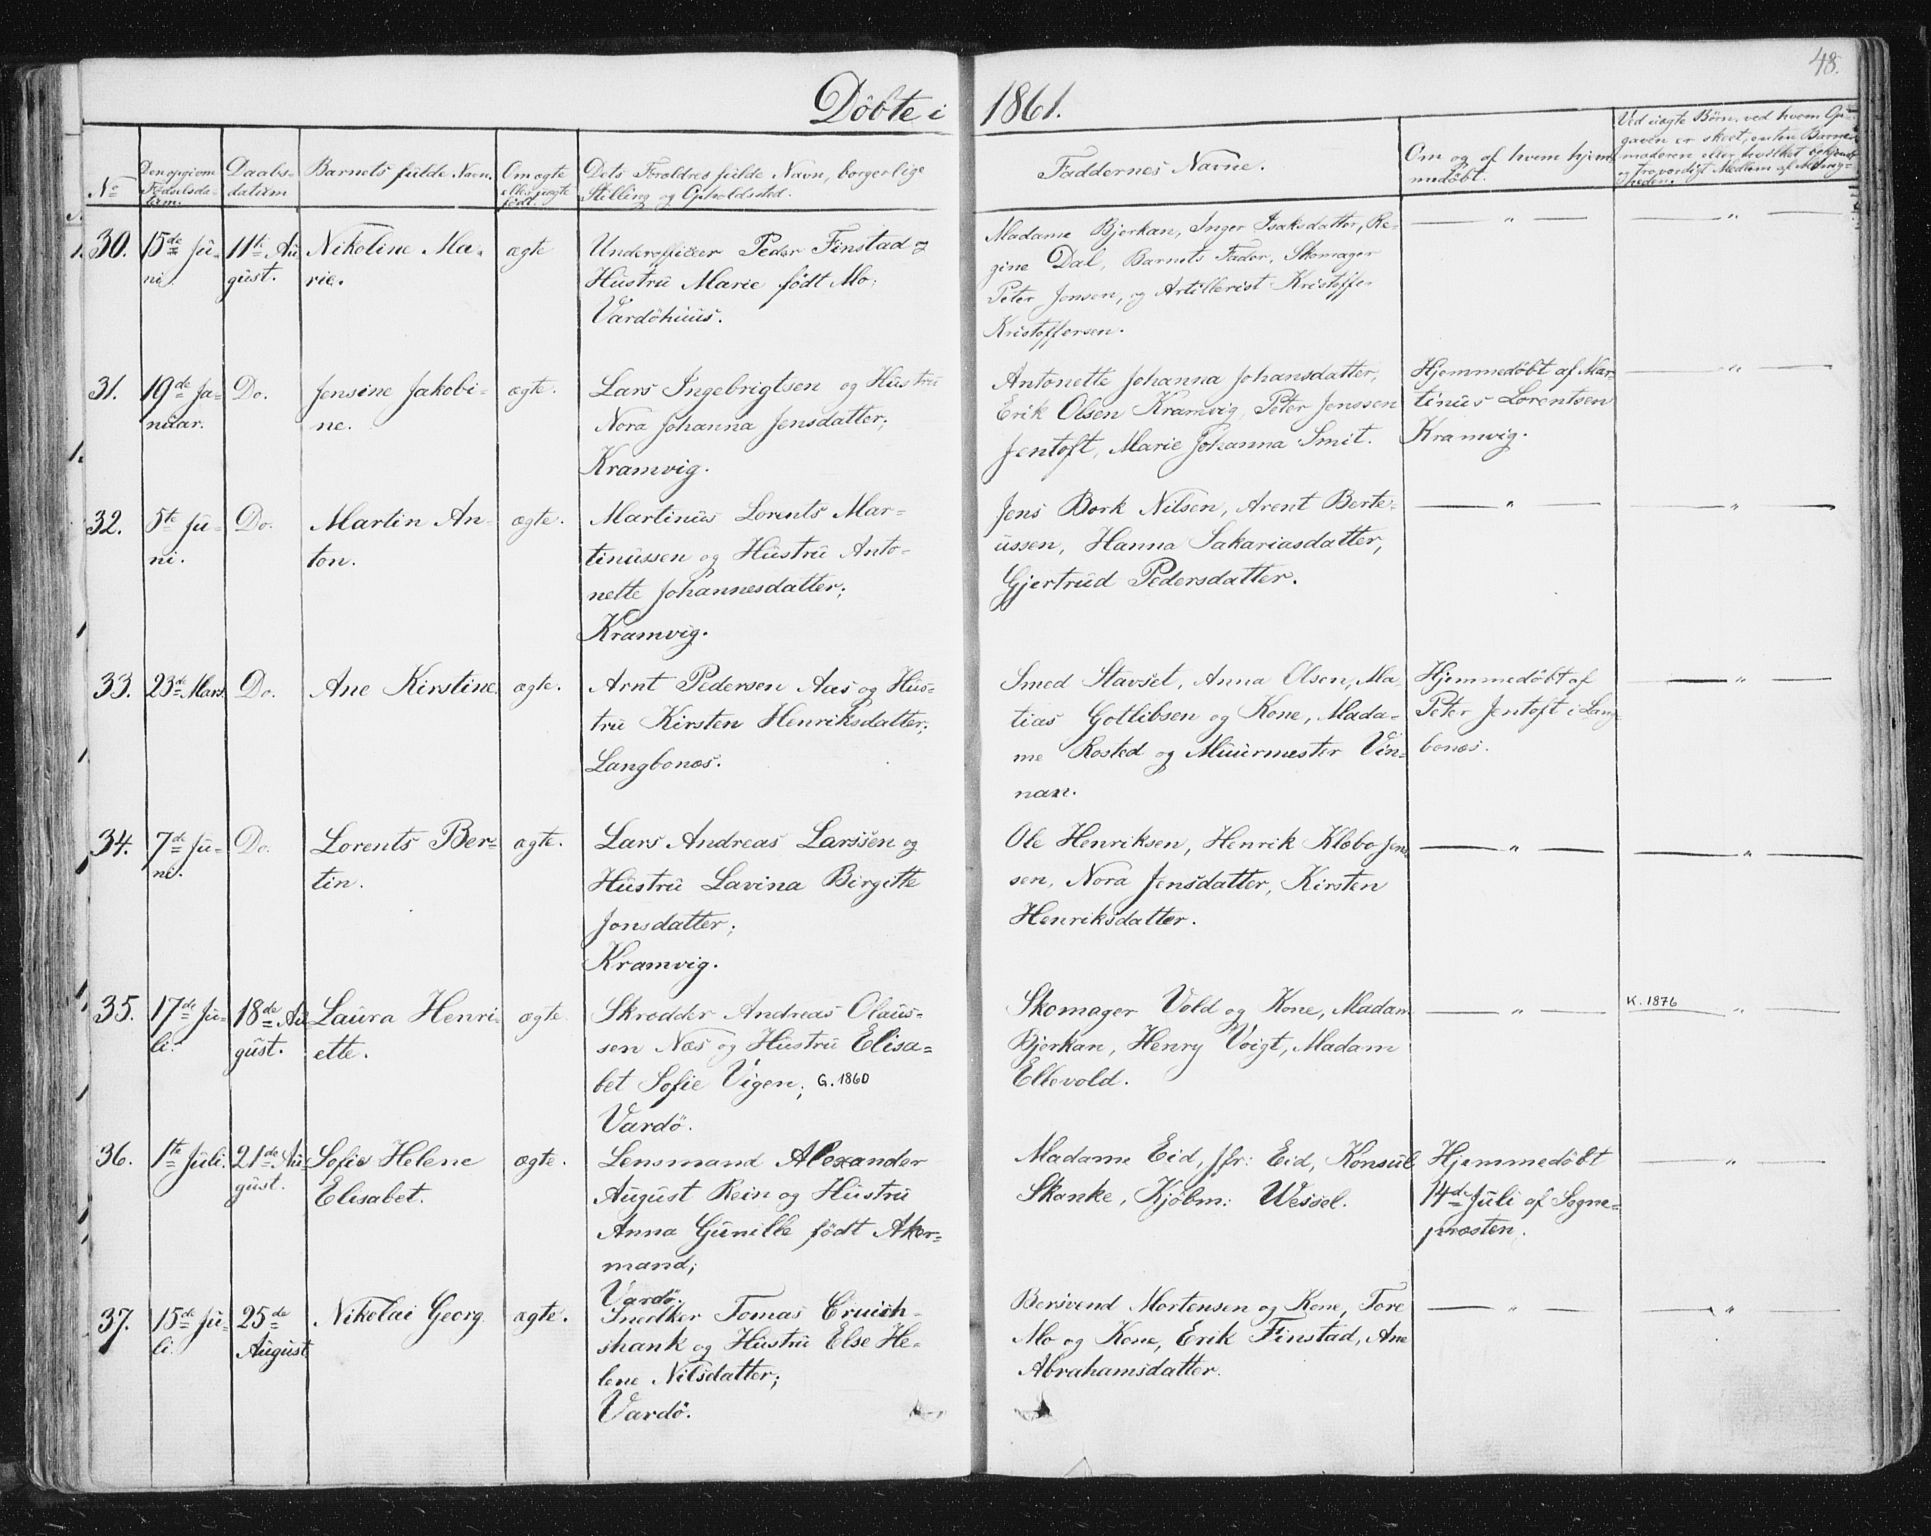 48.
Döbte i 1861.
No
Den opgivne Födselsdatum.
Daabsdatum
Barnets fulde Navn.
Om ægte eller uægte född.
Dets Forældres fulde Navn, borgerlige
Stilling og Opholdssted.
Faddernes Navne.
Om og af hvem hjem-
medöbt.
Ved uægte Börn, ved hvem Op-
gaven er skeet, enten Barne-
moderen eller hvilket
og troværdigt Medlem af Menig-
heden.
30.
15de Ju-
ni.
11te Au-
gust.
Nikoline Ma-
rie.
ægte
Underofficer Peder Finstad og
Hustru Marie född Mo;
Vardöhuus.
Madame Bjerkan, Inger Isaksdatter, Re-
gine Dal, Barnets Fader, Skomager
Peter Jensen, og Artillerist Kristoffer
Kristoffersen.
— " —
— " —
31.
19de Ja-
nuar.
Do.
Jensine Jakobi-
ne.
ægte.
Lars Ingebrigtsen og Hustru
Nora Johanna Jensdatter;
Kramvig.
Antonette Johanna Johansdatter,
Erik Olsen Kramvig, Peter Jenssen
Jentoft, Marie Johanna Smit.
Hjemmedöbt af Mar-
tinus Lorentsen
Kramvig.
— " —
32.
5te Ju-
ni.
Do.
Martin An-
ton.
ægte.
Martinus Lorents Mar-
tinussen og Hustru Anto-
nette Johannesdatter;
Kramvig.
Jens Bork Nilsen, Arent Berte-
ussen, Hanna Sakariasdatter,
Gjertrud Pedersdatter.
— " —
— " —
33.
23de Mars.
Do.
Ane Kirstine.
ægte.
Arnt Pedersen Aas og Hus-
tru Kirsten Henriksdatter;
Langbonæs.
Smed Stavset, Anna Olsen, Ma-
tias Gotlibsen og Kone, Mada-
me Rosted og Muurmester Vin-
nan.
Hjemmedöbt af
Peter Jentoft i Lang-
bonæs.
— " —
34.
7de Ju-
ni.
Do.
Lorents Ber-
tin.
ægte.
Lars Andreas Larssen og
Hustru Lavina Birgitte
Jonsdatter;
Kramvig.
Ole Henriksen, Henrik Klæbo Jen-
sen, Nora Jensdatter, Kirsten
Henriksdatter.
— " —
— " —
35.
17de Ju-
li.
18de Au-
gust.
Laura Henri-
ette.
ægte.
Skrædder Andreas Olaus-
sen Næs og Hustru Elisa-
bet Sofie Vigen; G. 1860
Vardö.
Skomager Vold og Kone, Madam
Bjerkan, Henry Voigt, Madam
Ellevold.
— " —
K. 1876
— " —
36.
1te Juli.
21de Au-
gust.
Sofie Helene
Elisabet.
ægte.
Lensmand Alexander
August Rein og Hustru
Anna Gunille född Aker-
mand;
Vardö.
Madame Eid, Jfr: Eid, Konsul
Skanke, Kjöbm: Wessel.
Hjemmedöbt
14de Juli af Sogne-
præsten.
— " —
37.
15de Ju-
li.
25de
August
Nikolai Georg.
ægte.
Snedker Tomas Cruich-
shank og Hustru Else He-
lene Nilsdatter;
Vardö.
Bersvend Mortensen og Kone, Tore
Mo og Kone, Erik Finstad, Ane
Abrahamsdatter.
— " —
— " —